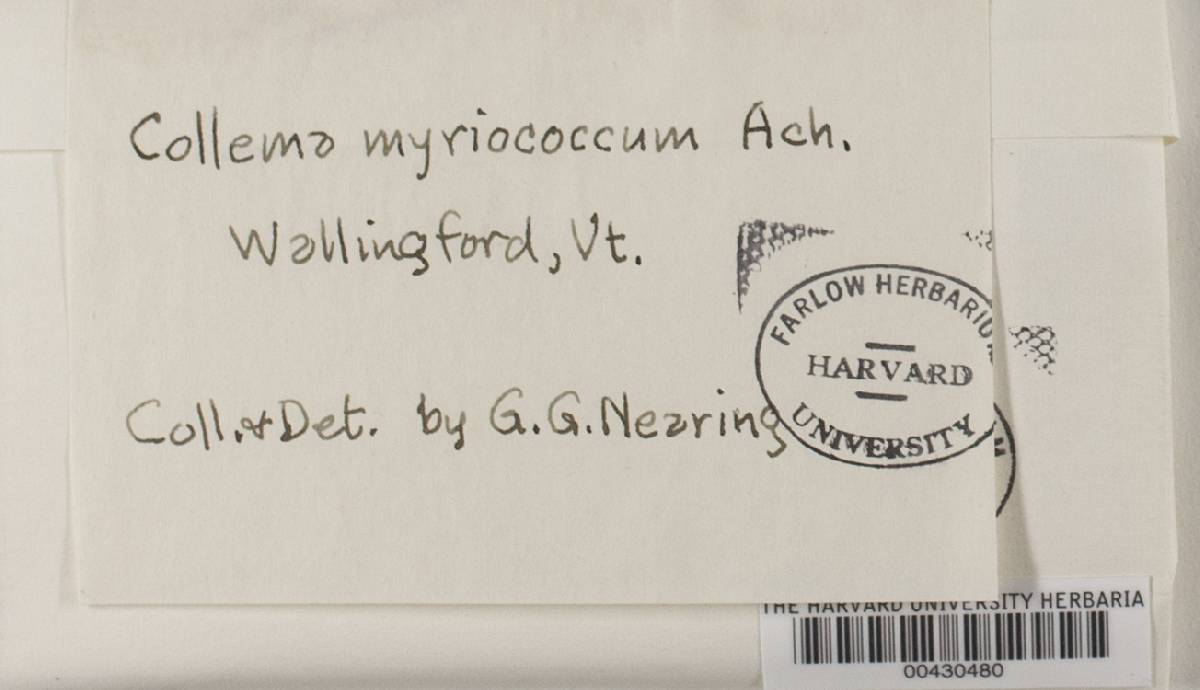 Collema myriococcum Ach.
Wallingford, Vt.
Coll. & Det. by G. G. Nearing
FARLOW HERBARIUM
HARVARD
UNIVERSITY
THE HARVARD UNIVERSITY HERBARIA
00430480